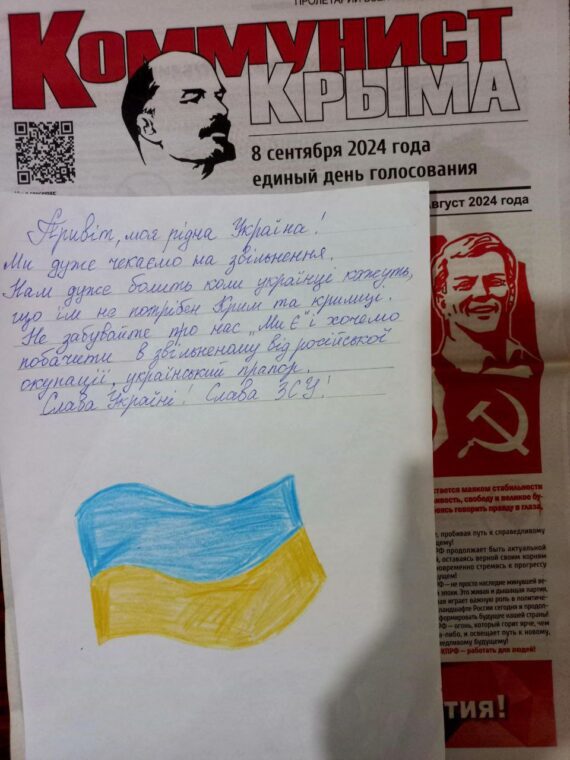 Коммунист
Крыма
8 сентября 2024 года
единый день голосования
август 2024 года
Привіт, моя рідна Україна!
Ми дуже чекаємо на звільнення.
Нам дуже болить коли українці кажуть,
що їм не потрібен Крим та кримці.
Не забувайте про нас „Ми Є" і хочемо
побачити в звільненому від російської
окупації, український прапор.
Слава Україні! Слава ЗСУ!
стается маяком стабильности
свободу и великое бу-
говорить правду в глаза,
пробивая путь к справедливому
РФ продолжает быть актуальной
оставаясь верной своим корням
временно стремясь к прогрессу
РФ — не просто наследие минувшей
эпохи. Это живая и дышащая партия,
играет важную роль в политиче-
ландшафте России сегодня и продол-
формировать будущее нашей страны!
РФ — огонь, который горит ярче, чем
-либо, и освещает путь к новому,
ведливому будущему!
КПРФ — работать для людей!
тия!